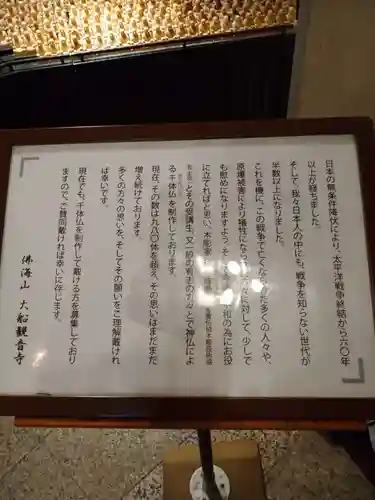 日本の無条件降伏により、太平洋戦争終結から六〇年
以上が経ちました。
そして、我々日本人の中にも、戦争を知らない世代が
半数以上になりました。
これを機に、この戦争で亡くなられた多くの人々や、
原爆被害により犠牲になられた方々に対して、少しで
も慰めになりますよう、そして平和の為にお役
に立てればと思い、木彫家
とその受講生、又一般の有志の方々とで神仏によ
る千体仏を制作しております。
現在、その数は九八〇体を超え、その思いはまだまだ
増え続けております。
多くの方々の思いを、そしてその願いをご理解戴けれ
ば幸いです。
現在でも、千体仏を制作して戴ける方を募集しており
ますので、ご賛同戴ければ幸いに存じます。
佛海山 大船観音寺